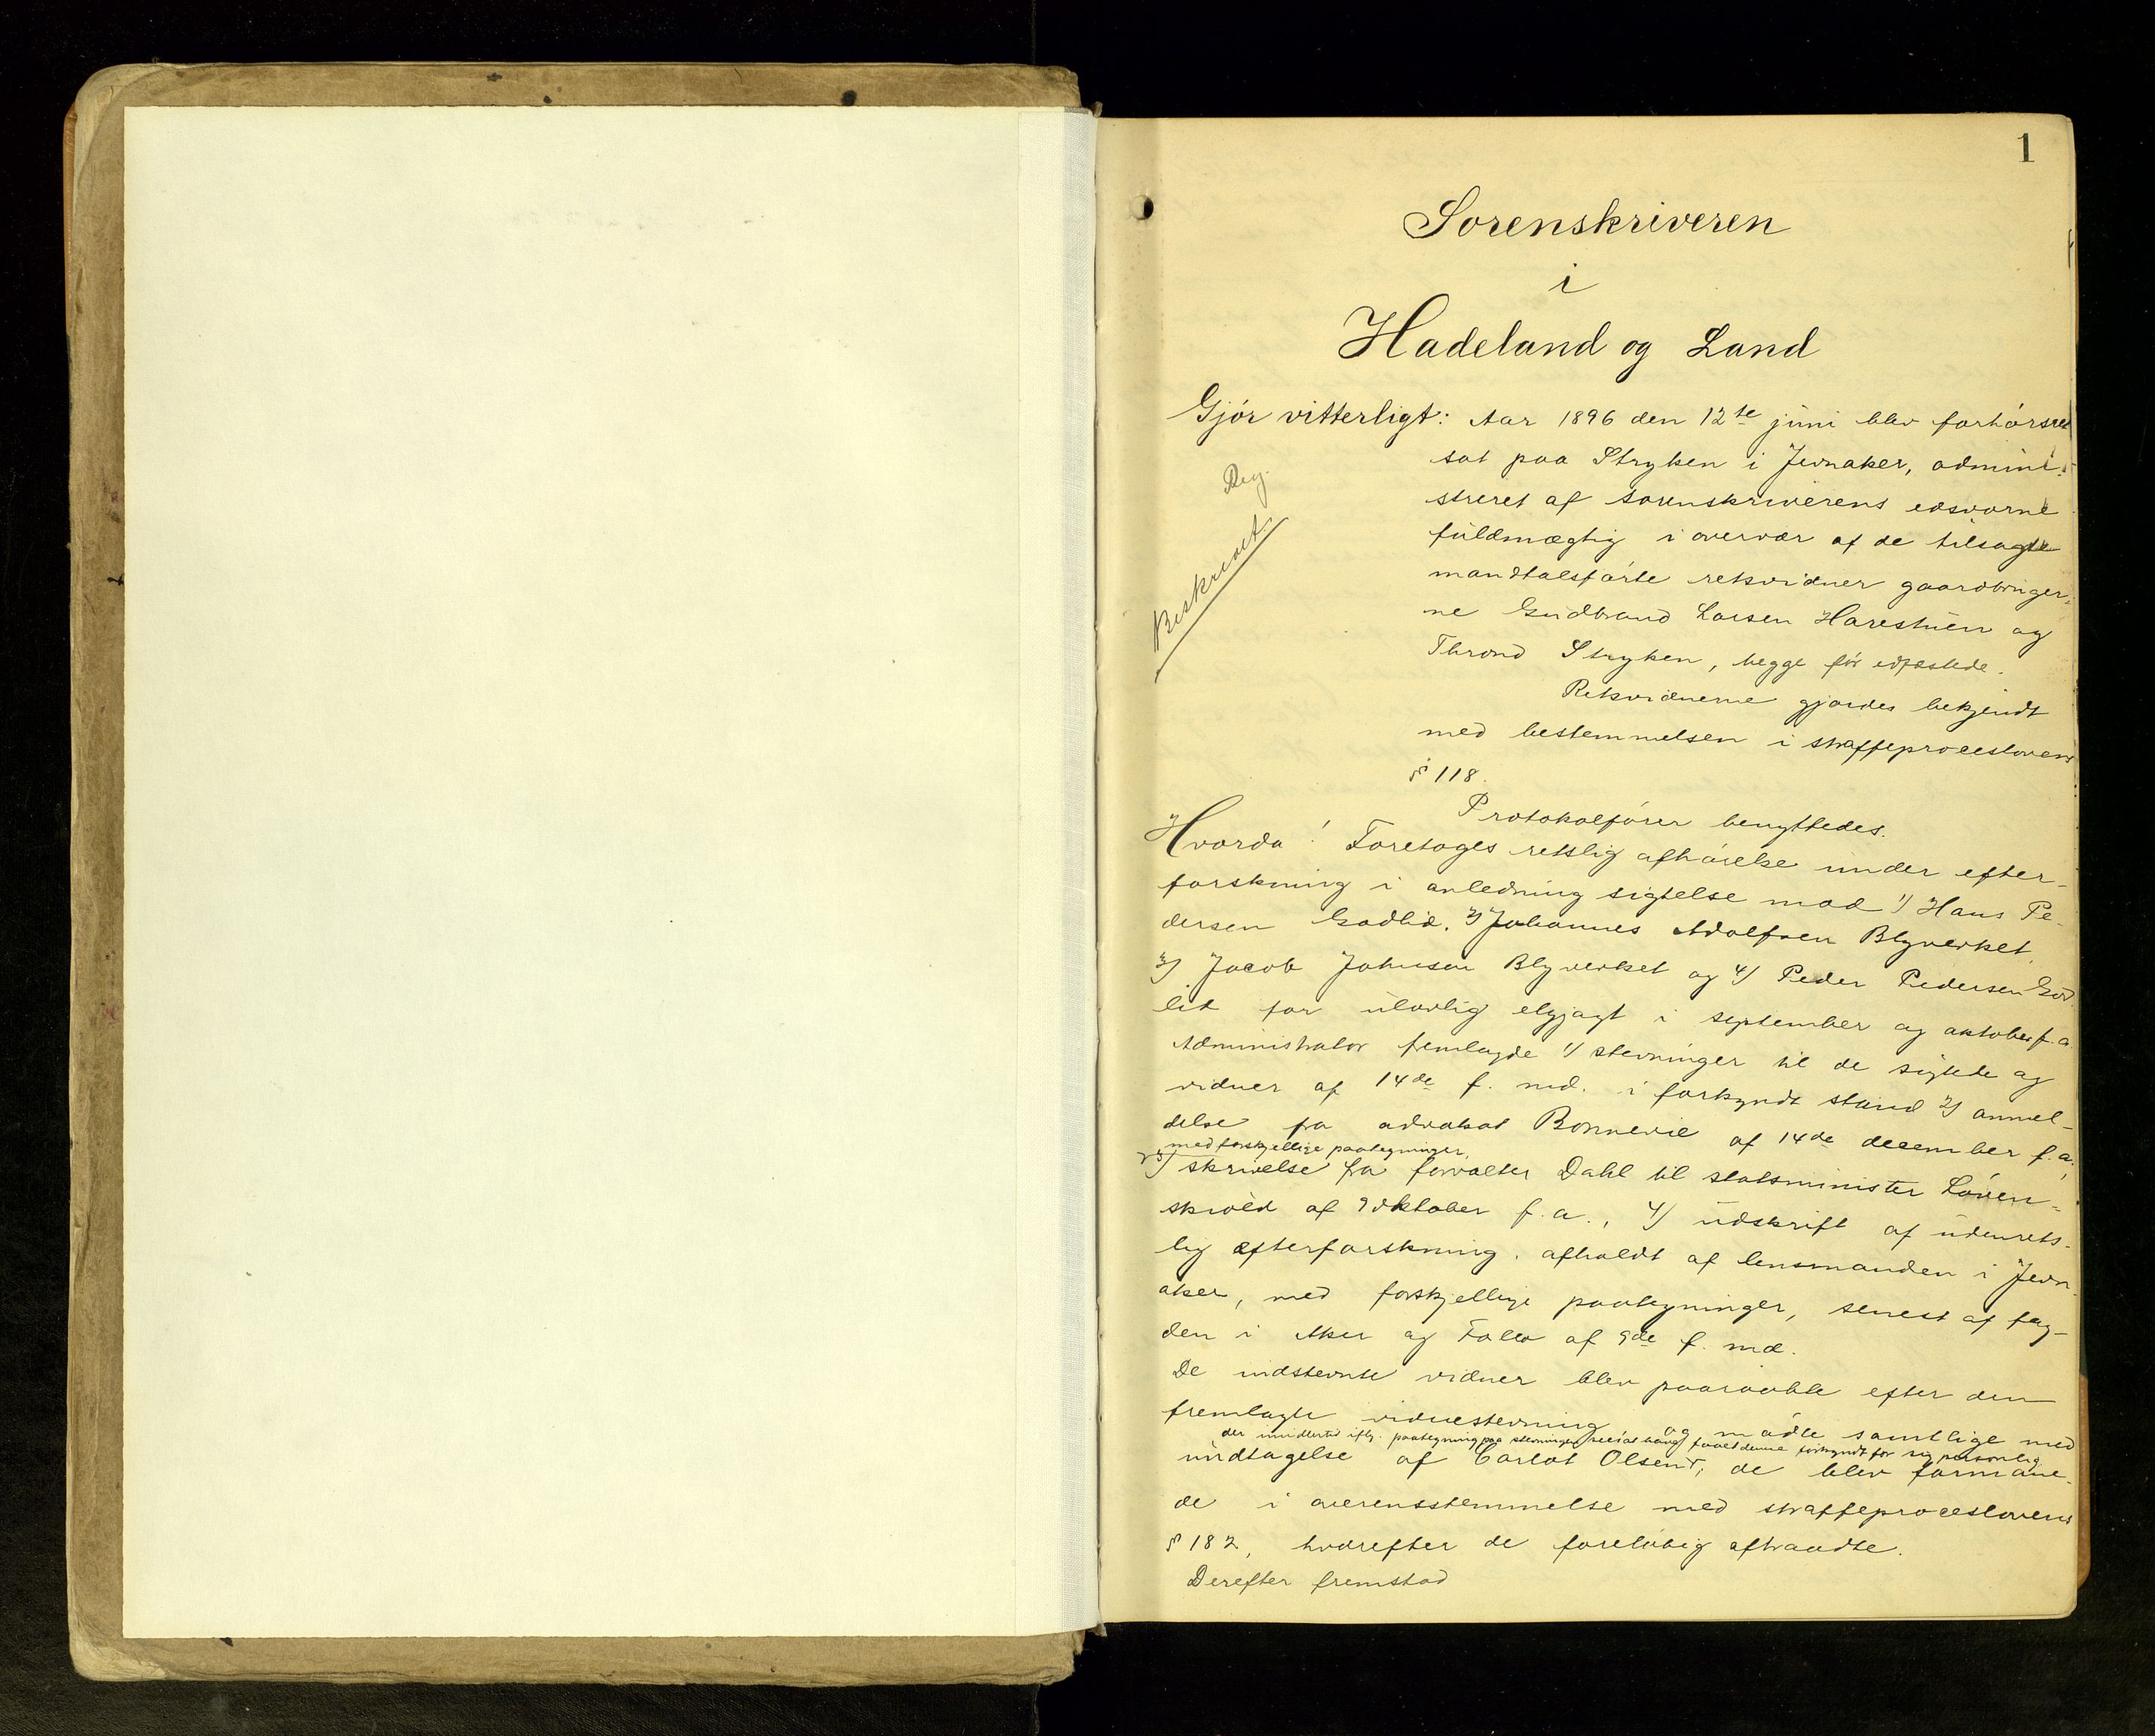 1
Sorenskriveren
i
Hadeland og Land
Gjør vitterligt: Aar 1896 den 12te juni blev forhørsret
sat paa Stryken i Jevnaker, admini-
streret af sorenskriverens edsvorne
fuldmægtig i overvær af de tilsagte
mandtalsførte retsvidner gaardbruger-
ne Gudbrand Larsen Harestuen og
Thrond Stryken, begge før edfæstede.
Retsvidnerne gjordes bekjendt
med bestemmelsen i straffeproceslovens
§ 118.
Reg.
Beskrevet.
Protokolfører benyttedes.
Hvorda! Foretoges retslig afhørelse under efter-
forskning i anledning sigtelse mod 1) Hans Pe-
dersen Godlid, 2) Johannes Adolfsen Blyverket,
3) Jacob Johnsen Blyverket og 4) Peder Pedersen God-
lid for ulovlig elgjagt i september og oktober f.a.
Administrator fremlagde 1) stevninger til de sigtede og
vidner af 14de f. md. i forkyndt stand 2) anmel-
delse fra advokat Bonnevie af 14de december f.a.,
med forskjellige paategninger,
3) skrivelse fra forvalter Dahl til statsminister Løven-
skiold af 9 oktober f.a., 4) udskrift af udenrets-
lig efterforskning, afholdt af lensmanden i Jevn-
aker, med forskjellige paategninger, senest af fog-
den i Aker og Follo af 9de f. md.
De indstevnte vidner blev paaraabte efter den
fremlagte vidnestevning og mødte samtlige med
der imidlertid iflg. paategning paa stevningen havde faaet denne forkyndt for sig personlig
undtagelse af Carlot Olsen; de blev formane-
de i overensstemmelse med straffeproceslovens
§ 182, hvorefter de foreløbig aftraadte.
Derefter fremstod